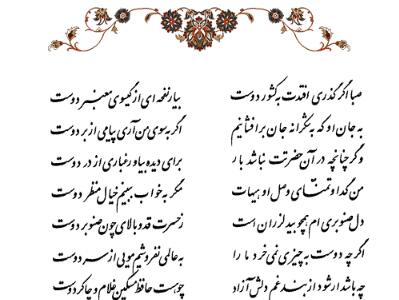 صبا اگر گذری افتدت به کشور دوست
بیار نفحه ای از گیسوی معنبر دوست
به جان او که به شکرانه جان برافشانم
اگر به سوی من آری پیامی از بر دوست
و گر چنانچه در آن حضرتت نباشد بار
برای دیده بیاور غباری از در دوست
من گدا و تمنای وصل او هیهات
مگر به خواب ببینم خیال منظر دوست
دل صنوبری ام همچو بید لرزان است
ز حسرت قد و بالای چون صنوبر دوست
اگر چه دوست به چیزی نمی خرد ما را
به عالمی نفروشیم مویی از سر دوست
چه باشد ار شود از بند غم دلش آزاد
چو هست حافظ مسکین غلام و چاکر دوست